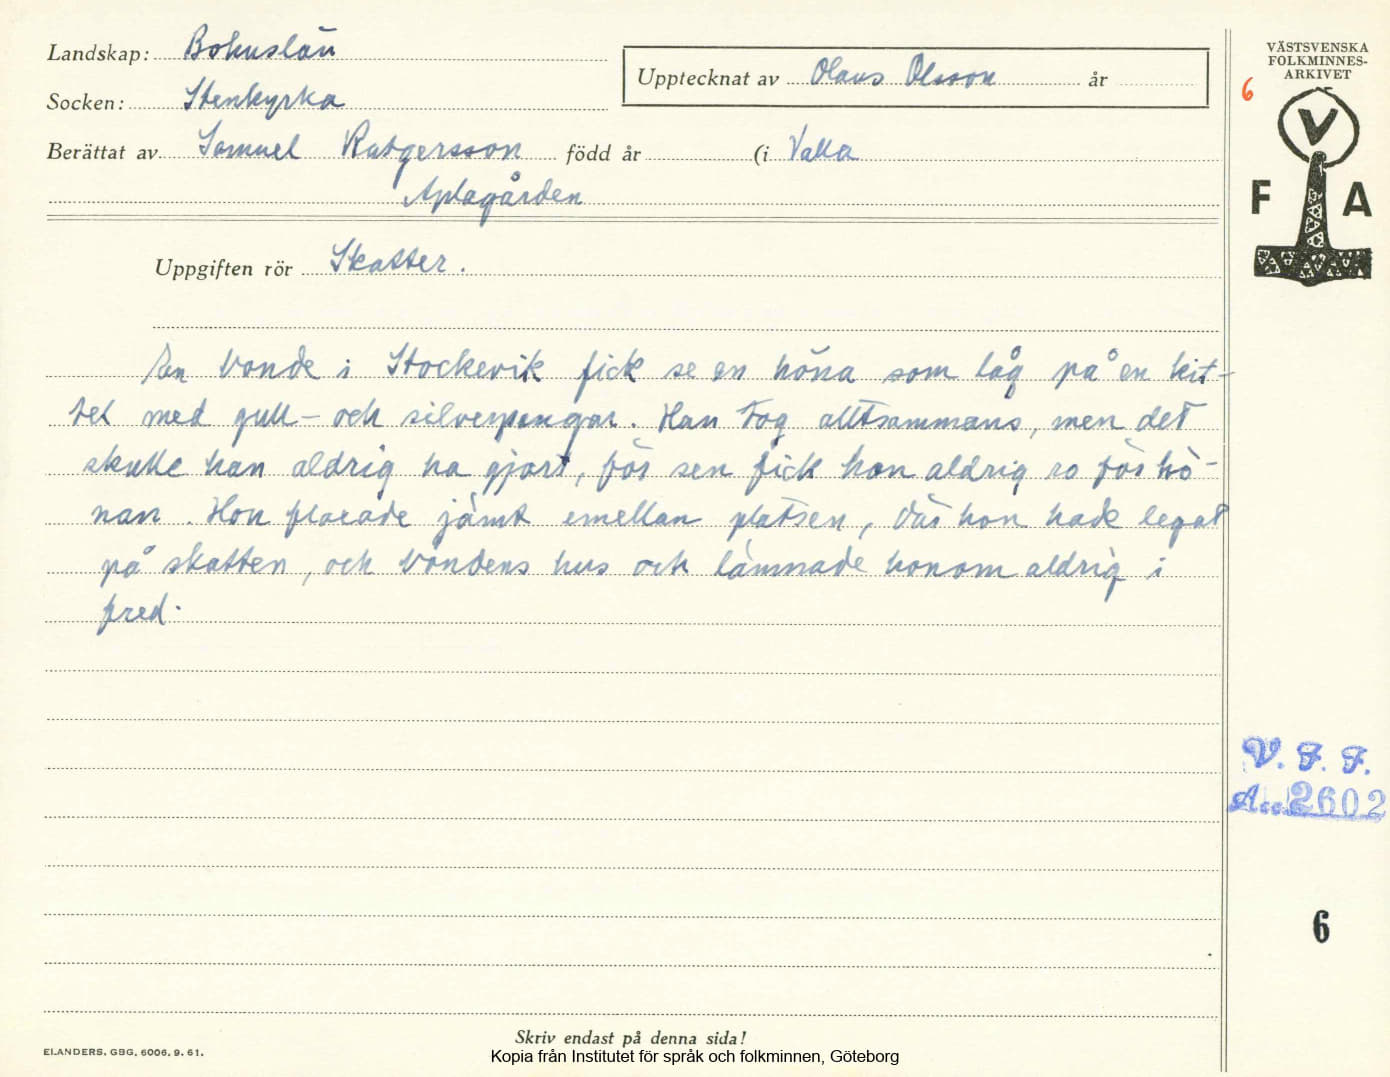 Landskap: Bohuslän
Socken: Stenkyrka
Berättat av Samuel Rutgersson född år (i Valla
Aplagården
Upptecknat av Olaus Olsson år
VÄSTSVENSKA
FOLKMINNES-
ARKIVET
6
V
F A
Uppgiften rör Skatter.
En bonde i Stockevik fick se en höna som låg på en kit-
tel med gull- och silverpengar. Han tog alltsammans, men det
skulle han aldrig ha gjort, för sen fick han aldrig ro för hö-
nan. Hon flaxade jämt emellan platsen, där hon hade legat
på skatten, och bondens hus och lämnade honom aldrig i
fred.
V. F. F.
Acc. 2602
6
Skriv endast på denna sida!
ELANDERS. GBG. 6006. 9. 61.
Kopia från Institutet för språk och folkminnen, Göteborg